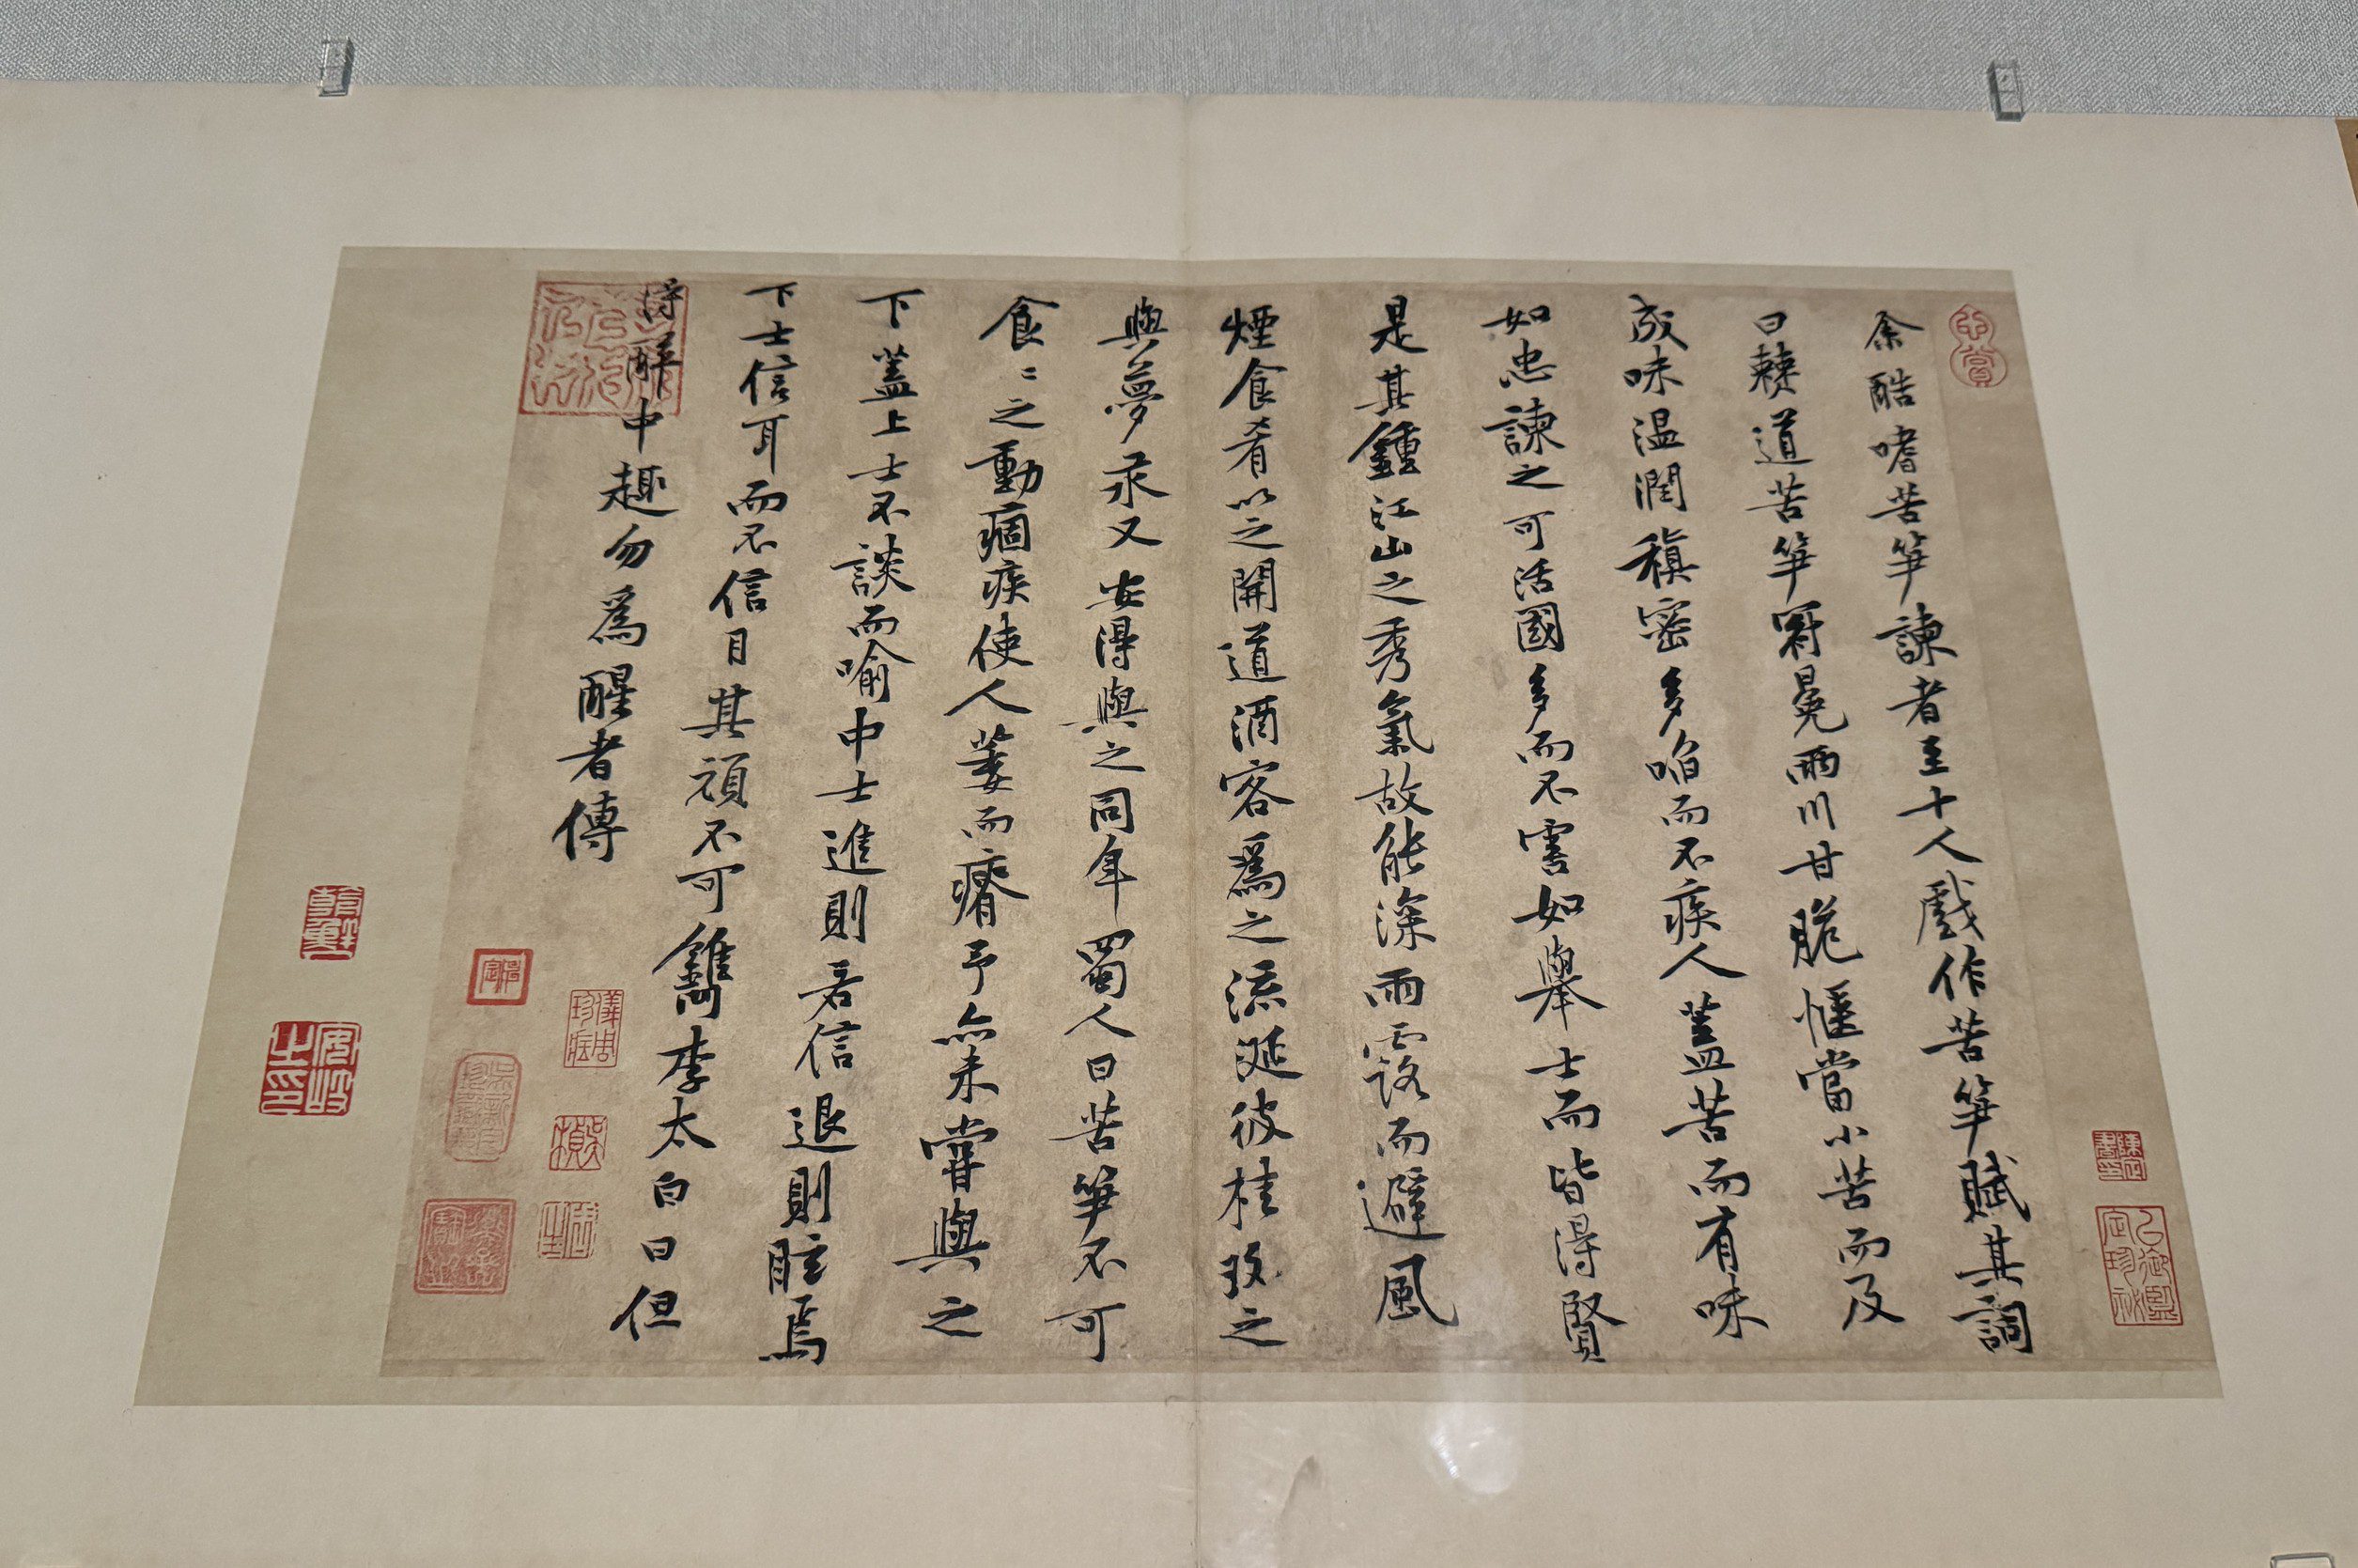 余酷嗜苦笋諫者至十人戲作苦笋賦其詞
曰僰道苦笋冠冕兩川甘脆愜當小苦而及
成味温潤稹密多啗而不疾人蓋苦而有味
如忠諫之可活國多而不害如舉士而皆得賢
是其鍾江山之秀氣故能深雨露而避風
煙食肴以之開道酒客爲之流涎彼桂玫之
與夢汞又安得與之同年蜀人曰苦笋不可
食〻之動痼疾使人萎而瘠予亦未甞與之
下蓋上士不談而喻中士進則若信退則眩焉
下士信耳而不信目其頑不可鐫李太白曰但
得醉中趣勿爲醒者傳